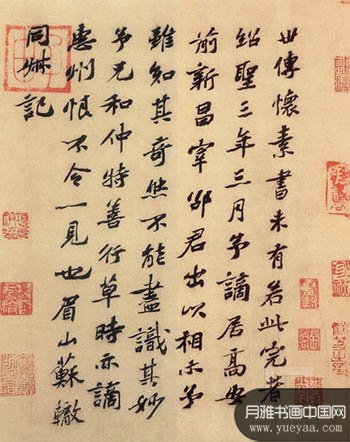 世傳懷素書未有若此完者
紹聖三年三月予謫居高安
前新昌宰邵君出以相示予
雖知其奇然不能盡識其妙
予兄和仲特善行草時亦謫
惠州恨不令一見也眉山蘇轍
同叔記
月雅书画中国网
www.yueyaa.com